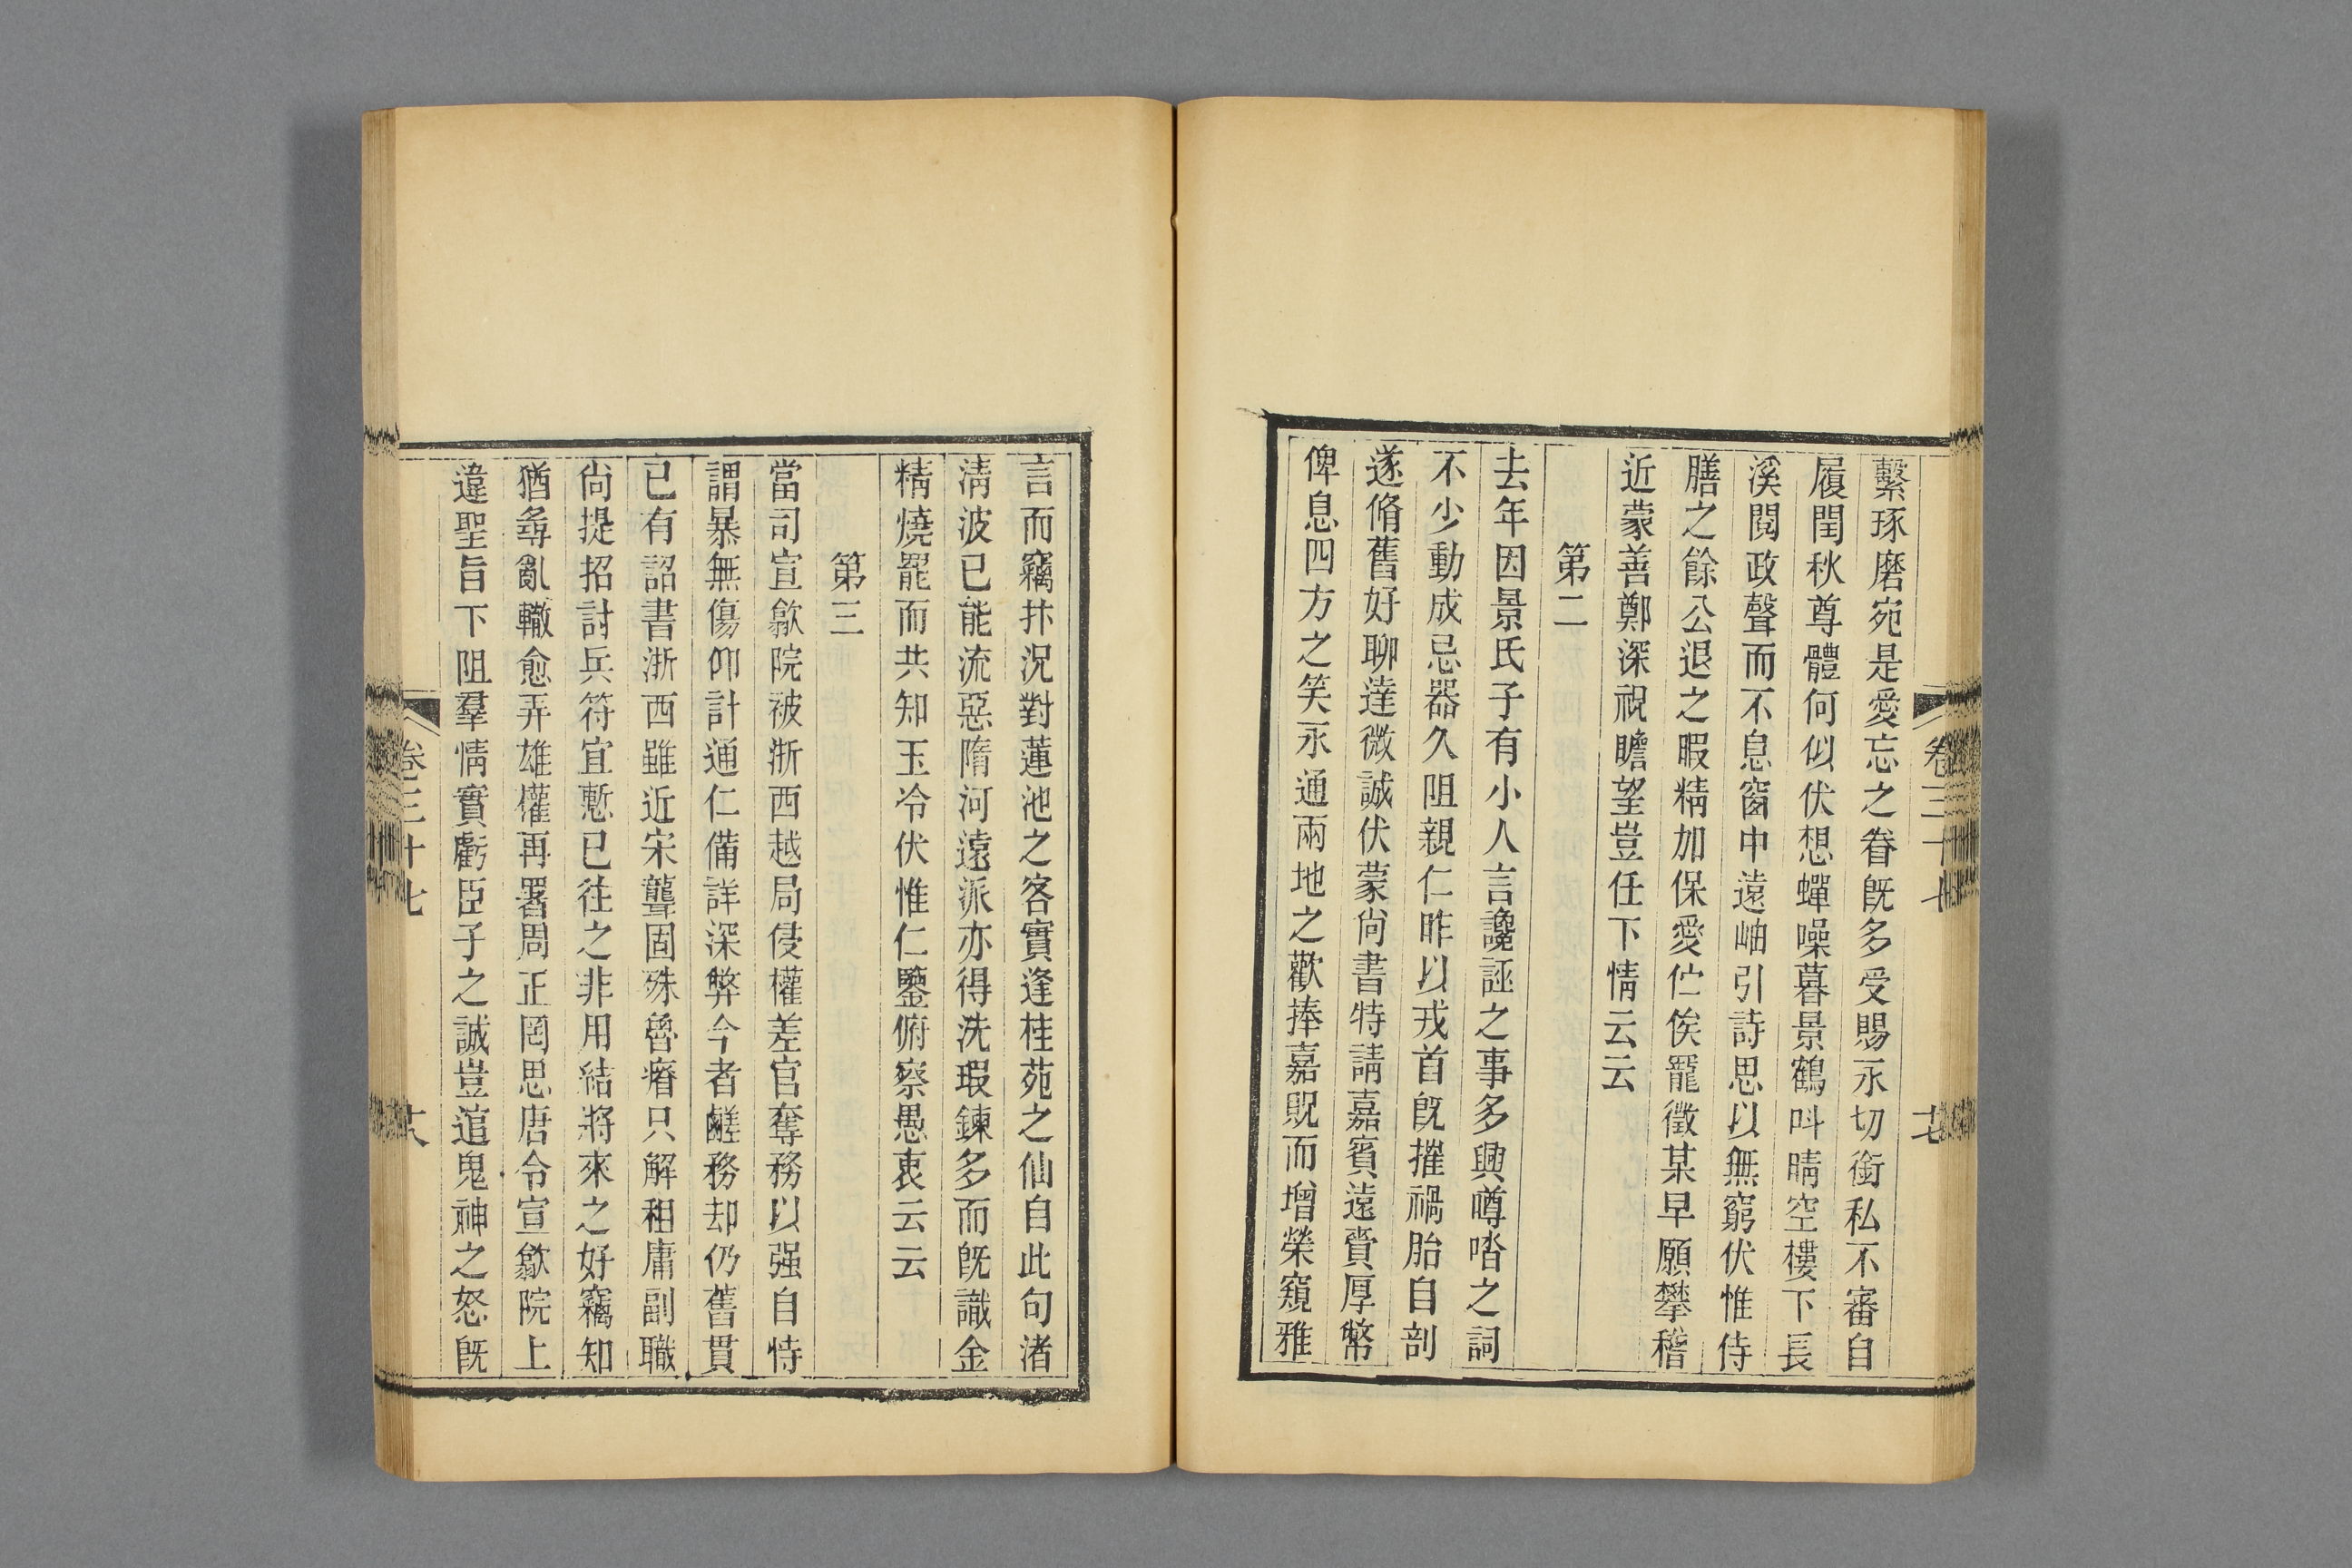 卷三十七
十七
繫琢磨宛是愛忘之眷旣多受賜永切銜私不審自
履閏秋尊體何似伏想蟬噪暮景鶴呌晴空樓下長
溪閱政聲而不息窗中遠岫引詩思以無窮伏惟侍
膳之餘公退之暇精加保愛伫俟寵徵某早願攀稽
近蒙善鄭深祝瞻望豈任下情云云
第二
去年因景氏子有小人言讒誣之事多興噂喒之詞
不少動成忌器久阻親仁昨以戎首旣摧禍胎自剖
遂脩舊好聊達微誠伏蒙尙書特請嘉賓遠賫厚幣
俾息四方之笑永通兩地之歡捧嘉貺而增榮窺雅
言而竊抃況對蓮池之客實逢桂苑之仙自此句渚
淸波已能流惡隋河遠派亦得洗瑕鍊多而旣識金
精燒罷而共知玉冷伏惟仁鑒俯察愚衷云云
第三
當司宣歙院被浙西越局侵權差官奪務以强自恃
謂暴無傷仰計通仁備詳深弊今者鹺務却仍舊貫
已有詔書浙西雖近宋聾固殊魯瘠只解租庸副職
尙提招討兵符宜慙已往之非用結將來之好竊知
猶尋亂轍愈弄雄權再署周正罔思唐令宣歙院上
違聖旨下阻羣情實虧臣子之誠豈逭鬼神之怒旣
卷三十七
十八